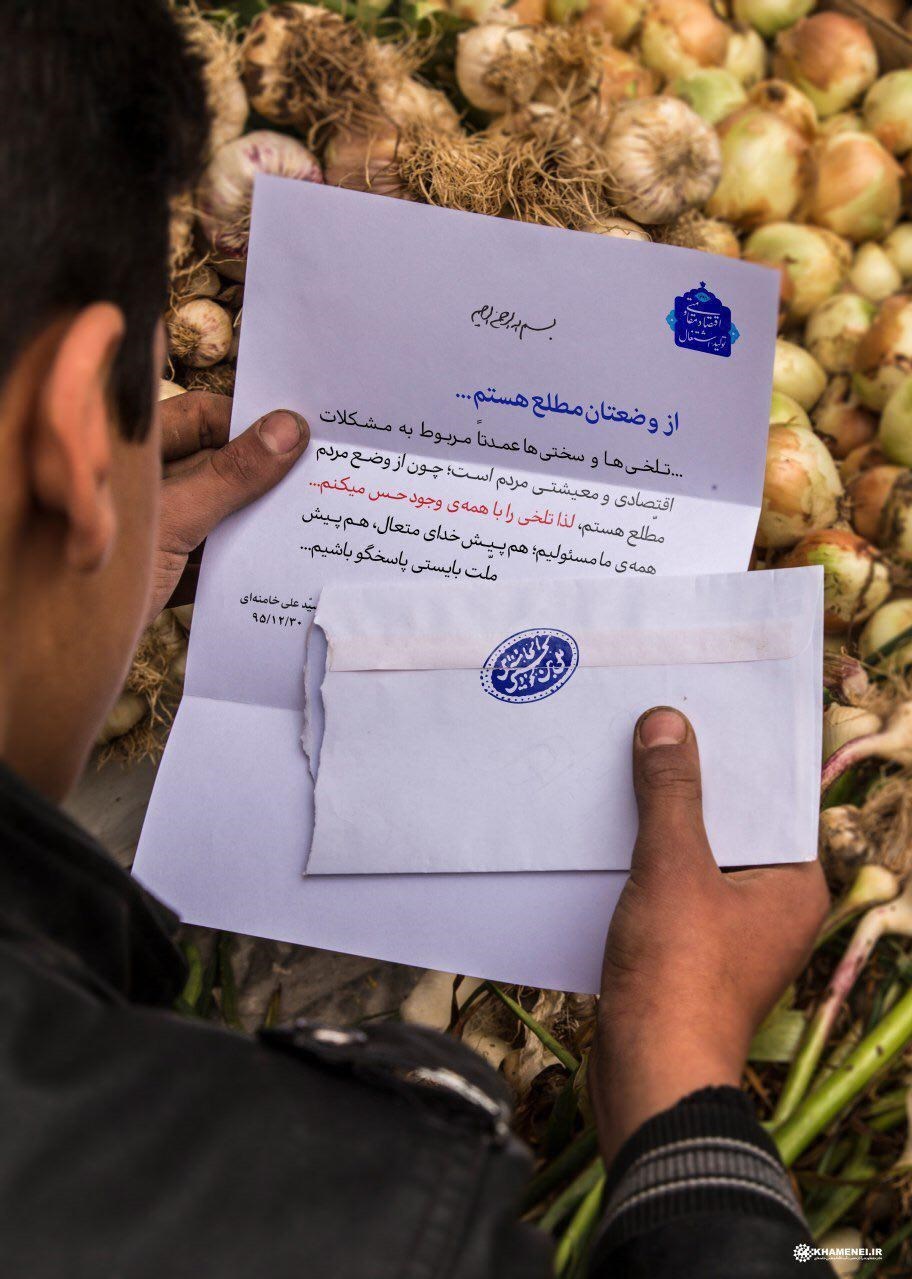 بسم الله الرحمن الرحیم
اقتصاد مقاومتی
تولید، اشتغال
از وضعتان مطلع هستم...
...تلخی‌ها و سختی‌ها عمدتاً مربوط به مشکلات
اقتصادی و معیشتی مردم است؛ چون از وضع مردم
مطّلع هستم، لذا تلخی را با همه‌ی وجود حس میکنم...
همه‌ی ما مسئولیم؛ هم پیش خدای متعال، هم پیش
ملّت بایستی پاسخگو باشیم...
سیّد علی خامنه‌ای
۹۵/۱۲/۳۰
KHAMENEI.IR